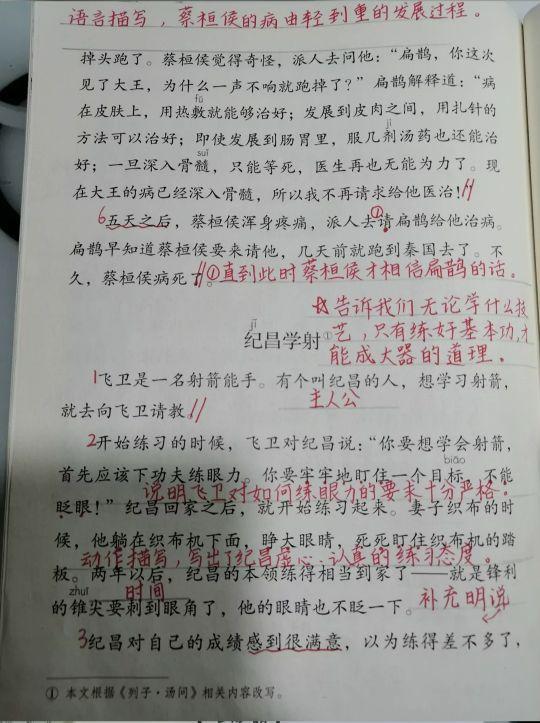 语言描写，蔡桓侯的病由轻到重的发展过程。
掉头跑了。蔡桓侯觉得奇怪，派人去问他：“扁鹊，你这次
见了大王，为什么一声不响就跑掉了？”扁鹊解释道：“病
fū
在皮肤上，用热敷就能够治好；发展到皮肉之间，用扎针的
jì
方法可以治好；即使发展到肠胃里，服几剂汤药也还能治
suǐ
好；一旦深入骨髓，只能等死，医生再也无能为力了。现
在大王的病已经深入骨髓，所以我不再请求给他医治！”
6五天之后，蔡桓侯浑身疼痛，派人去请扁鹊给他治病。①
扁鹊早知道蔡桓侯要来请他，几天前就跑到秦国去了。不
久，蔡桓侯病死了。
①直到此时蔡桓侯才相信扁鹊的话。
☆告诉我们无论学什么技
艺，只有练好基本功，才
能成大器的道理。
jǐ
纪昌学射①
1飞卫是一名射箭能手。有个叫纪昌的人，想学习射箭，
主人公
就去向飞卫请教。
2开始练习的时候，飞卫对纪昌说：“你要想学会射箭，
biāo
首先应该下功夫练眼力。你要牢牢地盯住一个目标，不能
说明飞卫对如何练眼力的要求十分严格。
眨眼！”纪昌回家之后，就开始练习起来。妻子织布的时
候，他躺在织布机下面，睁大眼睛，死死盯住织布机的踏
动作描写，写出了纪昌虚心、认真的练习态度。
板。两年以后，纪昌的本领练得相当到家了——就是锋利
时间
补充说明
zhuī
的锥尖要刺到眼角了，他的眼睛也不眨一下。
3纪昌对自己的成绩感到很满意，以为练得差不多了，
① 本文根据《列子·汤问》相关内容改写。